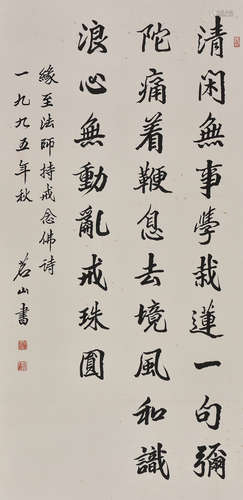 清闲無事學栽蓮一句彌
陀痛着鞭息去境風和識
浪心無動亂戒珠圓
緣至法師持戒念佛詩
一九九五年秋 茗山書